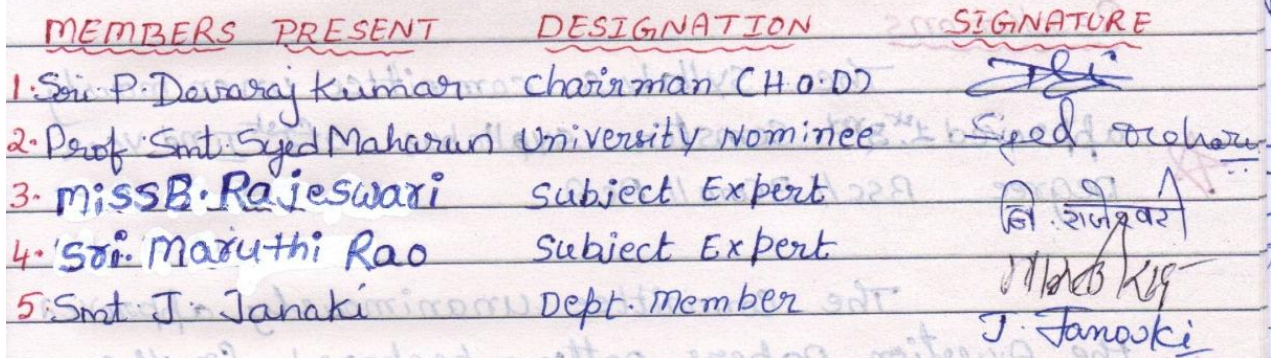 MEMBERS PRESENT DESIGNATION SIGNATURE
1. Sri P. Devaraj Kumar Chairman (H.O.D)
2. Prof. Smt. Syed Maharun University Nominee Syed
3. Miss B. Rajeswari Subject Expert बि. राजेश्वरी
4. Sri. Maruthi Rao Subject Expert
5. Smt. J. Janaki Dept. Member J. Janaki